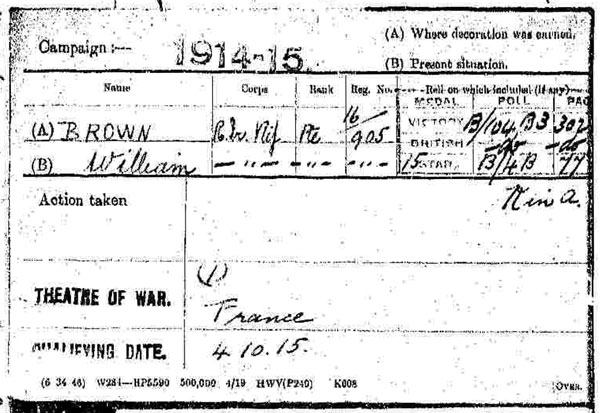 Campaign :— 1914-15.
(A) Where decoration was earned.
(B) Present situation.
Name Corps Rank Reg. No. Roll on which included (if any)
MEDAL ROLL PAGE
(A) BROWN R. Ir. Rif Pte 16/905 VICTORY B/104 B3 302
BRITISH —do— —do—
(B) William — " — — " — 15 STAR B/4B 77
Action taken
K in a.
THEATRE OF WAR. (1) France
QUALIFYING DATE. 4.10.15.
(6 34 46) W234—HP5590 500,000 4/19 HWV(P240) K608
OVER.